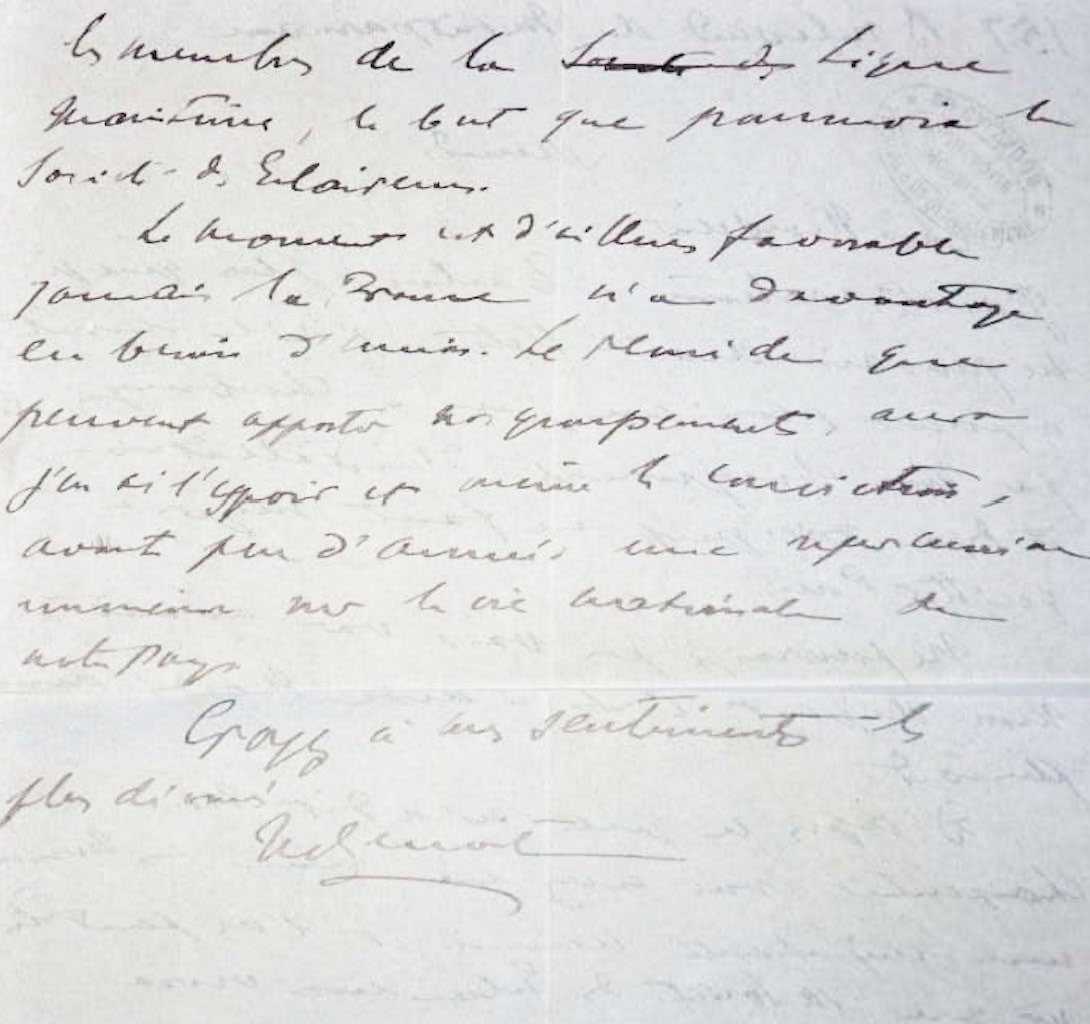 les membres de la Société des Ligue
Maritime, le but que poursuivra la
Société des Eclaireurs.
Le moment est d'ailleurs favorable
jamais la France n'a davantage
eu besoin d'unions. Le remède que
peuvent apporter nos groupements aura
j'en ai l'espoir et même la conviction,
avant peu d'années une répercussion
immense sur la vie nationale de
notre Pays
Croyez à mes sentiments les
plus dévoués